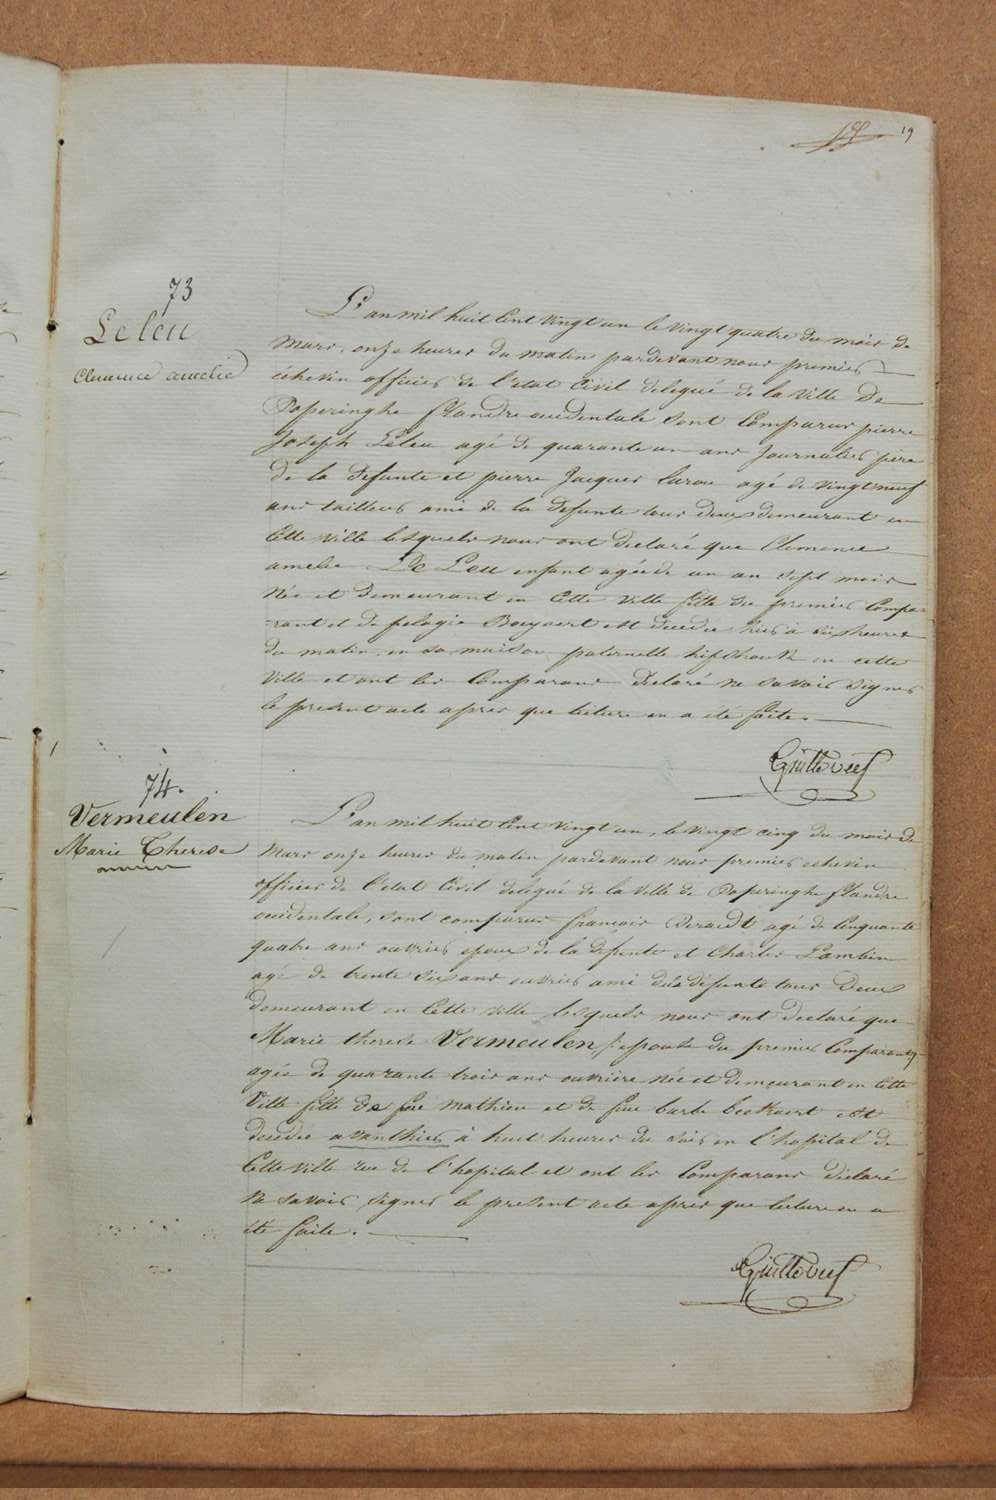 19
73
Leleu
Clemence amelie
L'an mil huit Cent vingt un le vingt quatre du mois de
Mars, onze heures du matin pardevant nous premier
échevin officier de l'état Civil delegué de la Ville de
Poperinghe flandre occidentale sont Comparus pierre
Joseph Leleu agé de quarante un ans Journalier père
de la defunte et pierre Jacques agé de vingt neuf
ans tailleur ami de la defunte tous deux demeurant en
Cette Ville lesquels nous ont declaré que Clemence
amelie De Leu enfant agée de un an sept mois
Née et demeurant en Cette Ville fille du premier Compa-
-rant et de pelagie Bouyaert est decedée hier à six heures
du matin, en sa maison paternelle en cette
Ville et ont les Comparans Declaré ne savoir signer
le present acte apres que lecture en a été faite.
74.
Vermeulen
Marie Therese
L'an mil huit Cent vingt un, le vingt cinq du mois de
Mars onze heures du matin pardevant nous premier echevin
officier de l'état Civil delegué de la Ville de Poperinghe flandre
occidentale, sont comparus françois agé de Cinquante
quatre ans ouvrier epoux de la defunte et Charles Lambin
agé de trente six ans ouvrier ami de la défunte tous Deux
demeurant en Cette Ville lesquels nous ont declaré que
Marie therese Vermeulen, epouse du premier Comparant,
agée de quarante trois ans ouvrière née et demeurant en Cette
Ville fille de feu mathieu et de feue barbe beekaert est
decedée avanthier à huit heures du soir en l'hopital de
Cette Ville rue de l'hopital et ont les Comparans declaré
ne savoir signer le present acte apres que lecture en a
été faite.